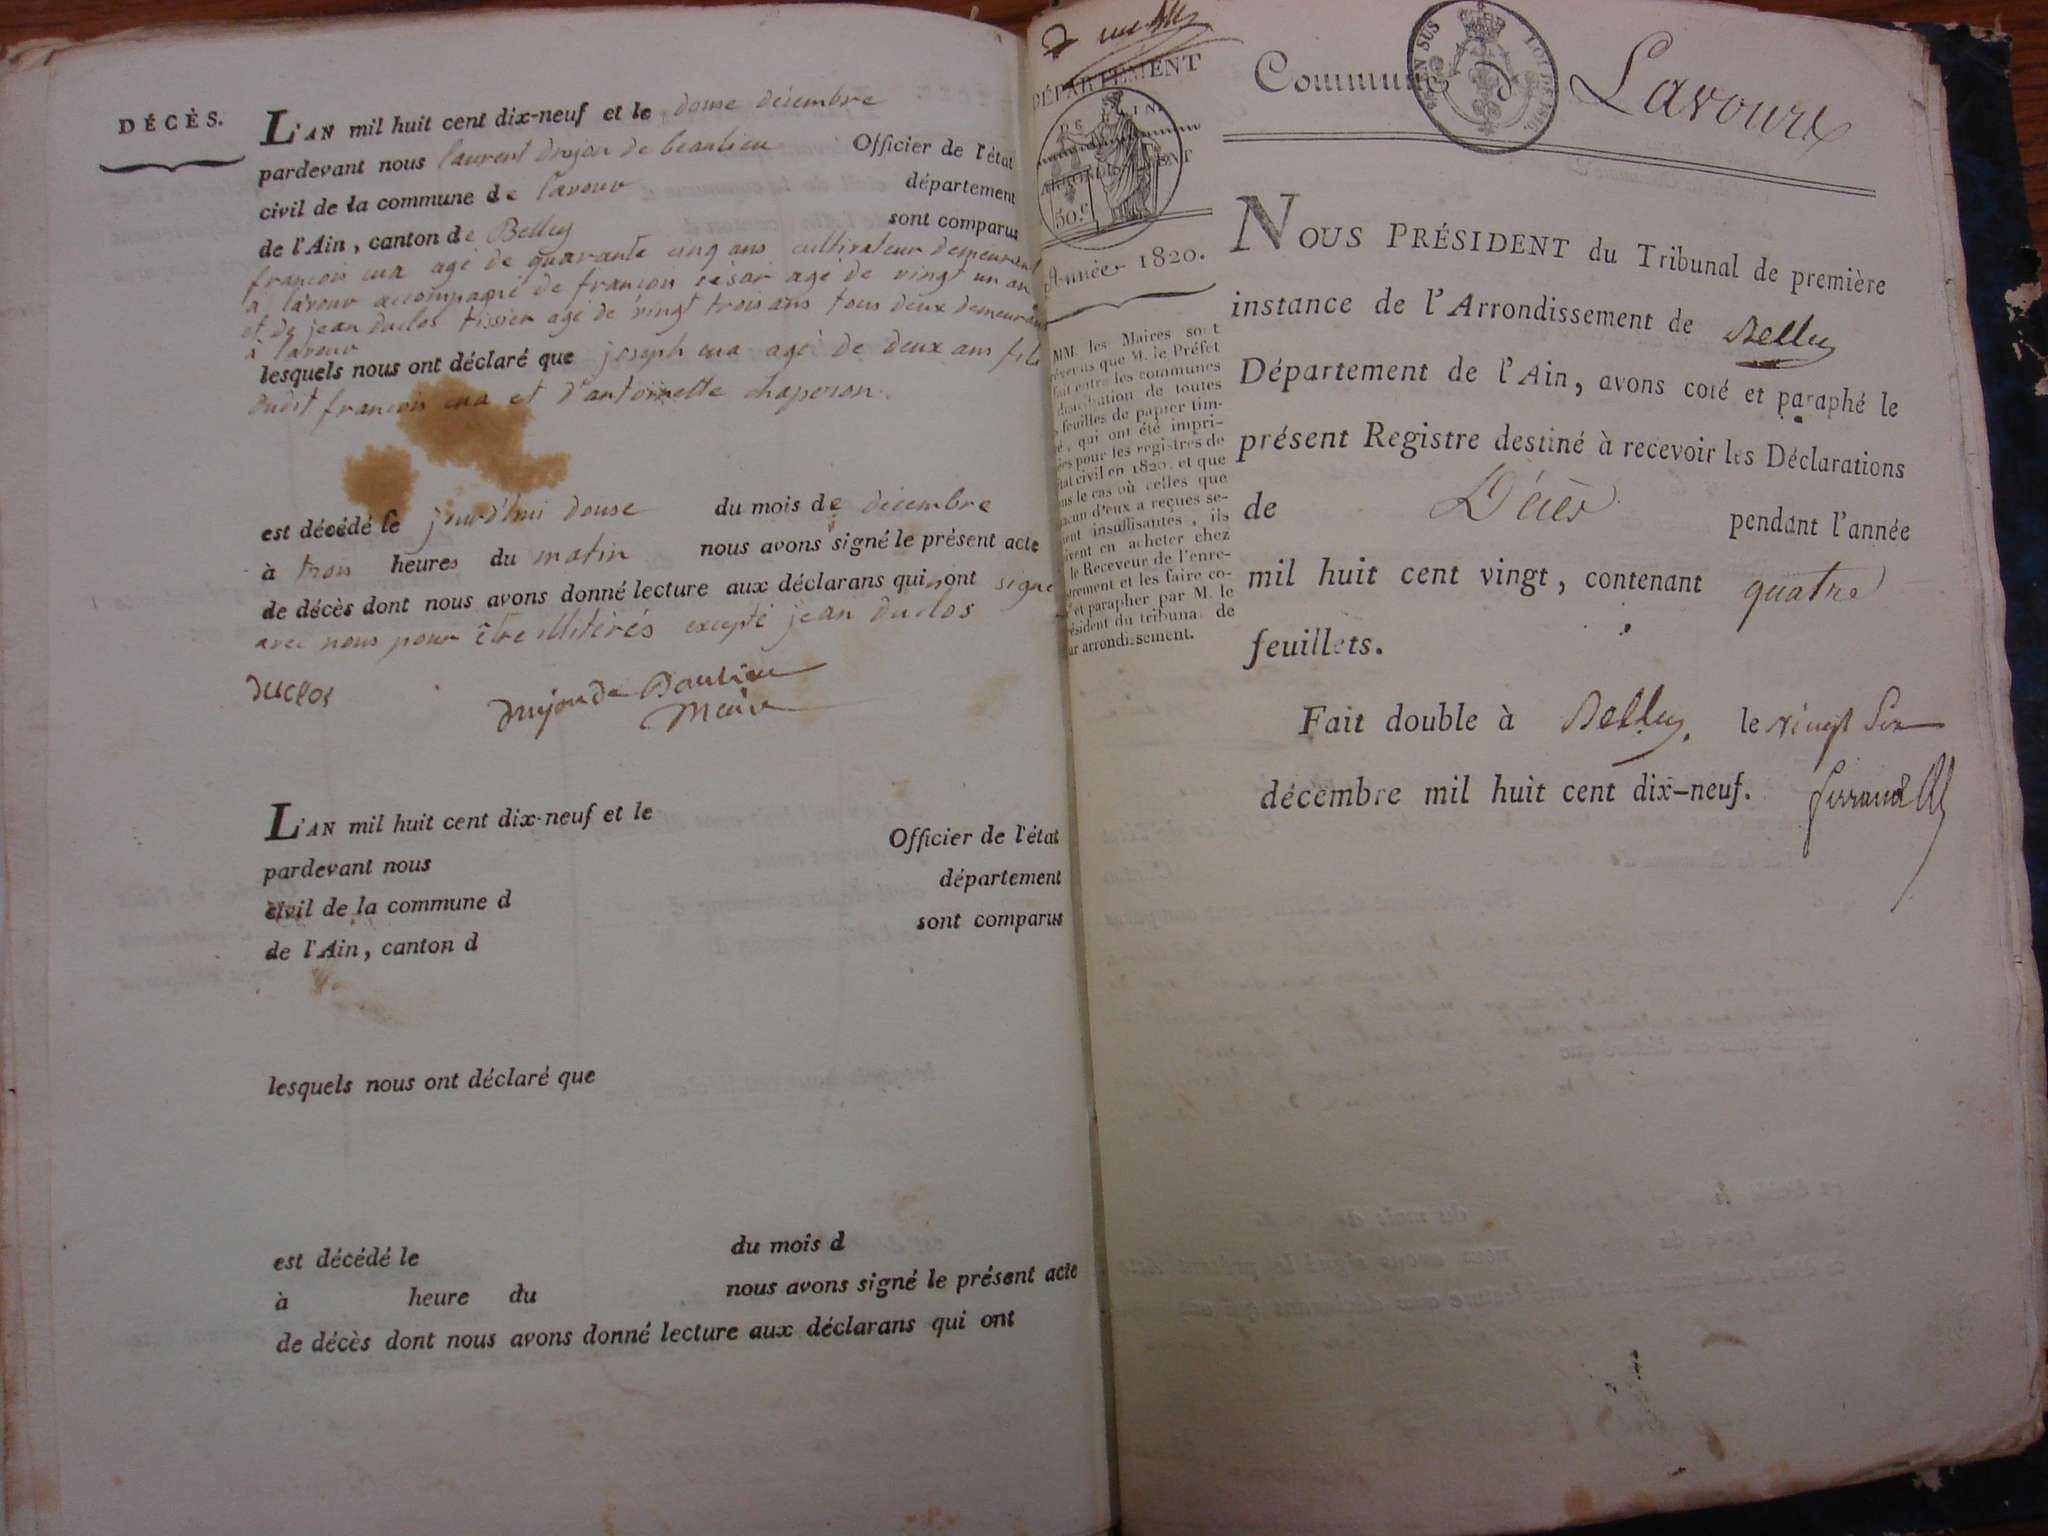 DÉCÈS.
L'AN mil huit cent dix-neuf et le douse décembre
pardevant nous laurent drujon de beaulieu Officier de l'état
civil de la commune de lavour département
de l'Ain, canton de Belley sont comparus
francois cua agé de quarante cinq ans cultivateur demeurant
à lavour accompagné de francois césar agé de vingt un an
et de jean duclos tissier agé de vingt trois ans tous deux demeurans
à lavour
lesquels nous ont déclaré que joseph cua agé de deux ans fils
francois cua et d'antoinette chaperon.
est décédé le jourd'hui douse du mois de décembre
à trois heures du matin nous avons signé le présent acte
de décès dont nous avons donné lecture aux déclarans qui ont signé
avec nous pour être illitérés excepté jean duclos
duclos
Drujon de Baulieu
Maire
L'AN mil huit cent dix-neuf et le
pardevant nous Officier de l'état
civil de la commune d département
de l'Ain, canton d sont comparus
lesquels nous ont déclaré que
est décédé le du mois d
à heure du nous avons signé le présent acte
de décès dont nous avons donné lecture aux déclarans qui ont
DÉPARTEMENT
50.c
Année 1820.
MM. les Maires sont
que M. le Préfet
fait entre les communes
distribution de toutes
feuilles de papier tim-
qui ont été impri-
pour les registres de
civil en 1820, et que
le cas où celles que
d'eux a reçues se-
insuffisantes, ils
en acheter chez
le Receveur de l'enre-
et les faire co-
et parapher par M. le
du tribunal de
arrondissement.
Commune d Lavoure
EN SUS
LOI DE 1816.
NOUS PRÉSIDENT du Tribunal de première
instance de l'Arrondissement de Belley
Département de l'Ain, avons coté et paraphé le
présent Registre destiné à recevoir les Déclarations
de Décès pendant l'année
mil huit cent vingt, contenant quatre
feuillets.
Fait double à Belley, le vingt Six
décembre mil huit cent dix-neuf.